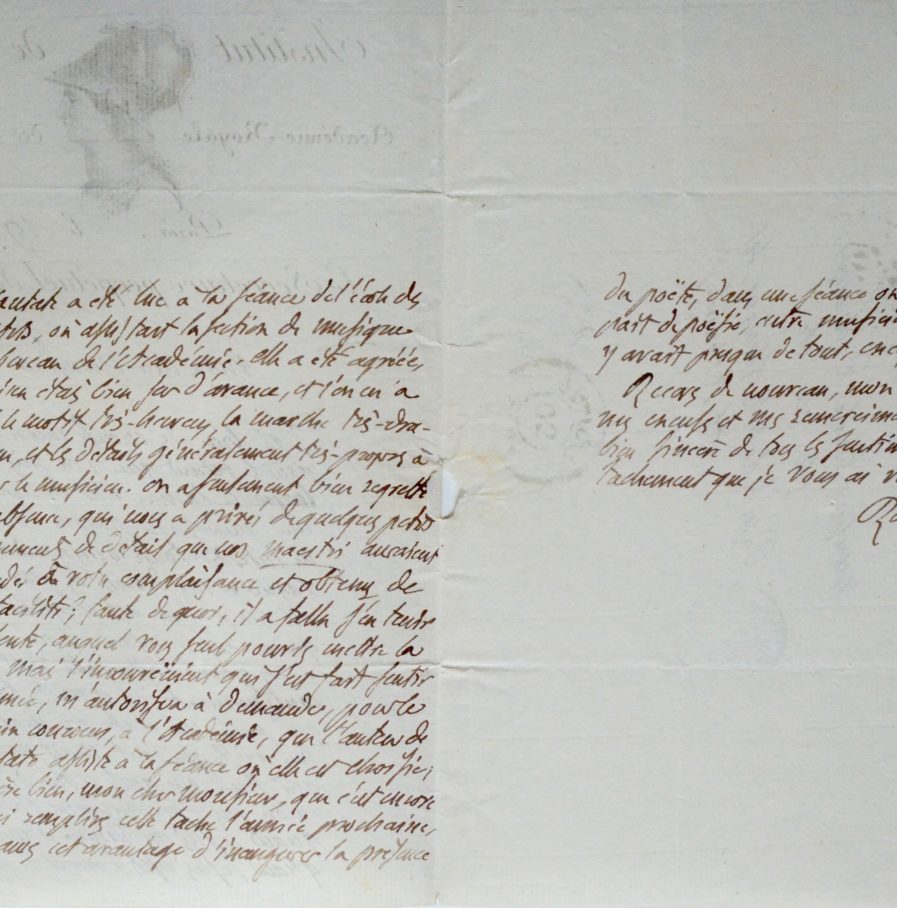 a été lue à la séance de l'école des
où assistaient la section de musique
bureau de l'Académie. elle a été agréée,
j'en étais bien sûr d'avance, et l'on en a
le motif très-heureux, la marche très-dra-
et les détails généralement très-propres à
le musicien. on a seulement bien regretté
absence, qui nous a privés de quelques petits
de détail que nos maestri auraient
à votre complaisance et obtenus de
facilité; faute de quoi, il a fallu s'en tenir
auquel vous seul pouviez mettre la
mais l'inconvénient qui s'est fait sentir
m'autorisera à demander, pour le
concours, à l'Académie, que l'auteur de
assiste à la séance où elle est choisie;
bien, mon cher monsieur, que c'est encore
remplirez cette tache l'année prochaine,
cet avantage d'inaugurer la présence
du poëte, dans une séance où
pait de poësie, entre musici
y avait presque de tout, enc
Recevez de nouveau, mon
mes excuses et mes remercîme
bien sincère de tous les sentim
tachement que je vous ai v
Institut de
Académie Royale des
Paris, le